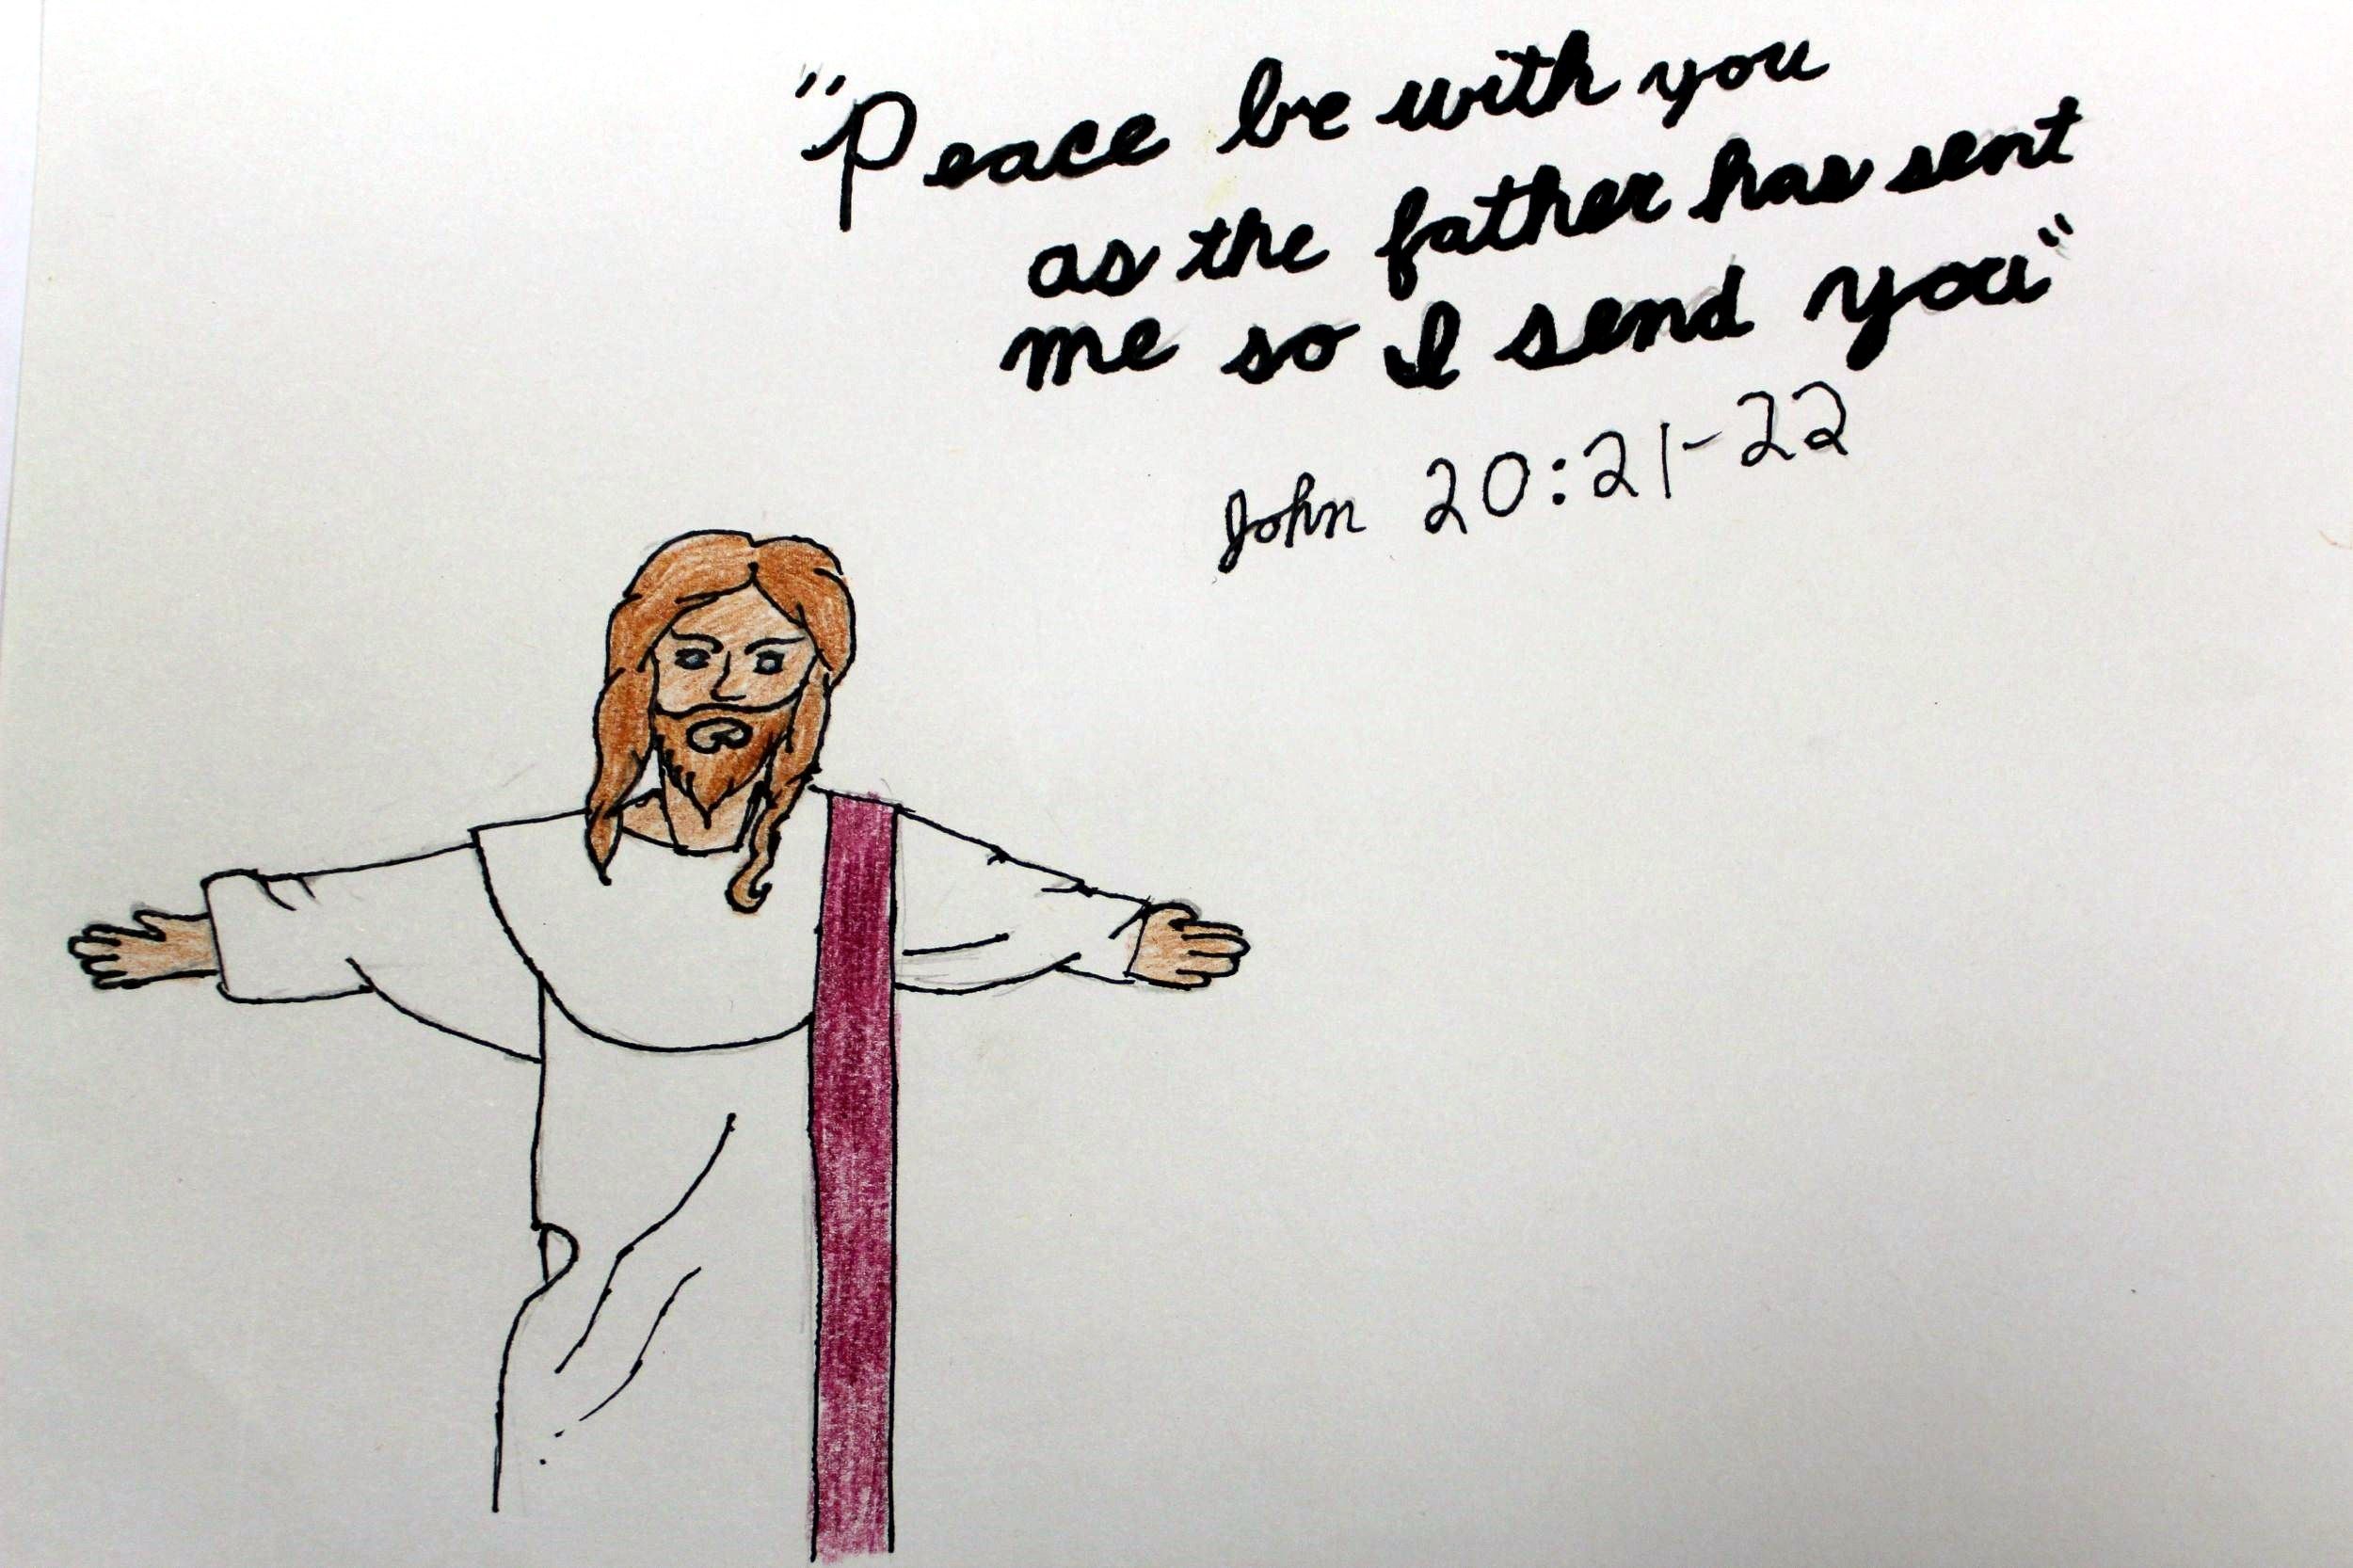 "Peace be with you
as the father has sent
me so I send you"
John 20:21-22